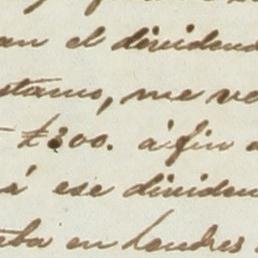 an el dividend
stamo, me ve
£300. á fin
á ese dividen
ba en Londres